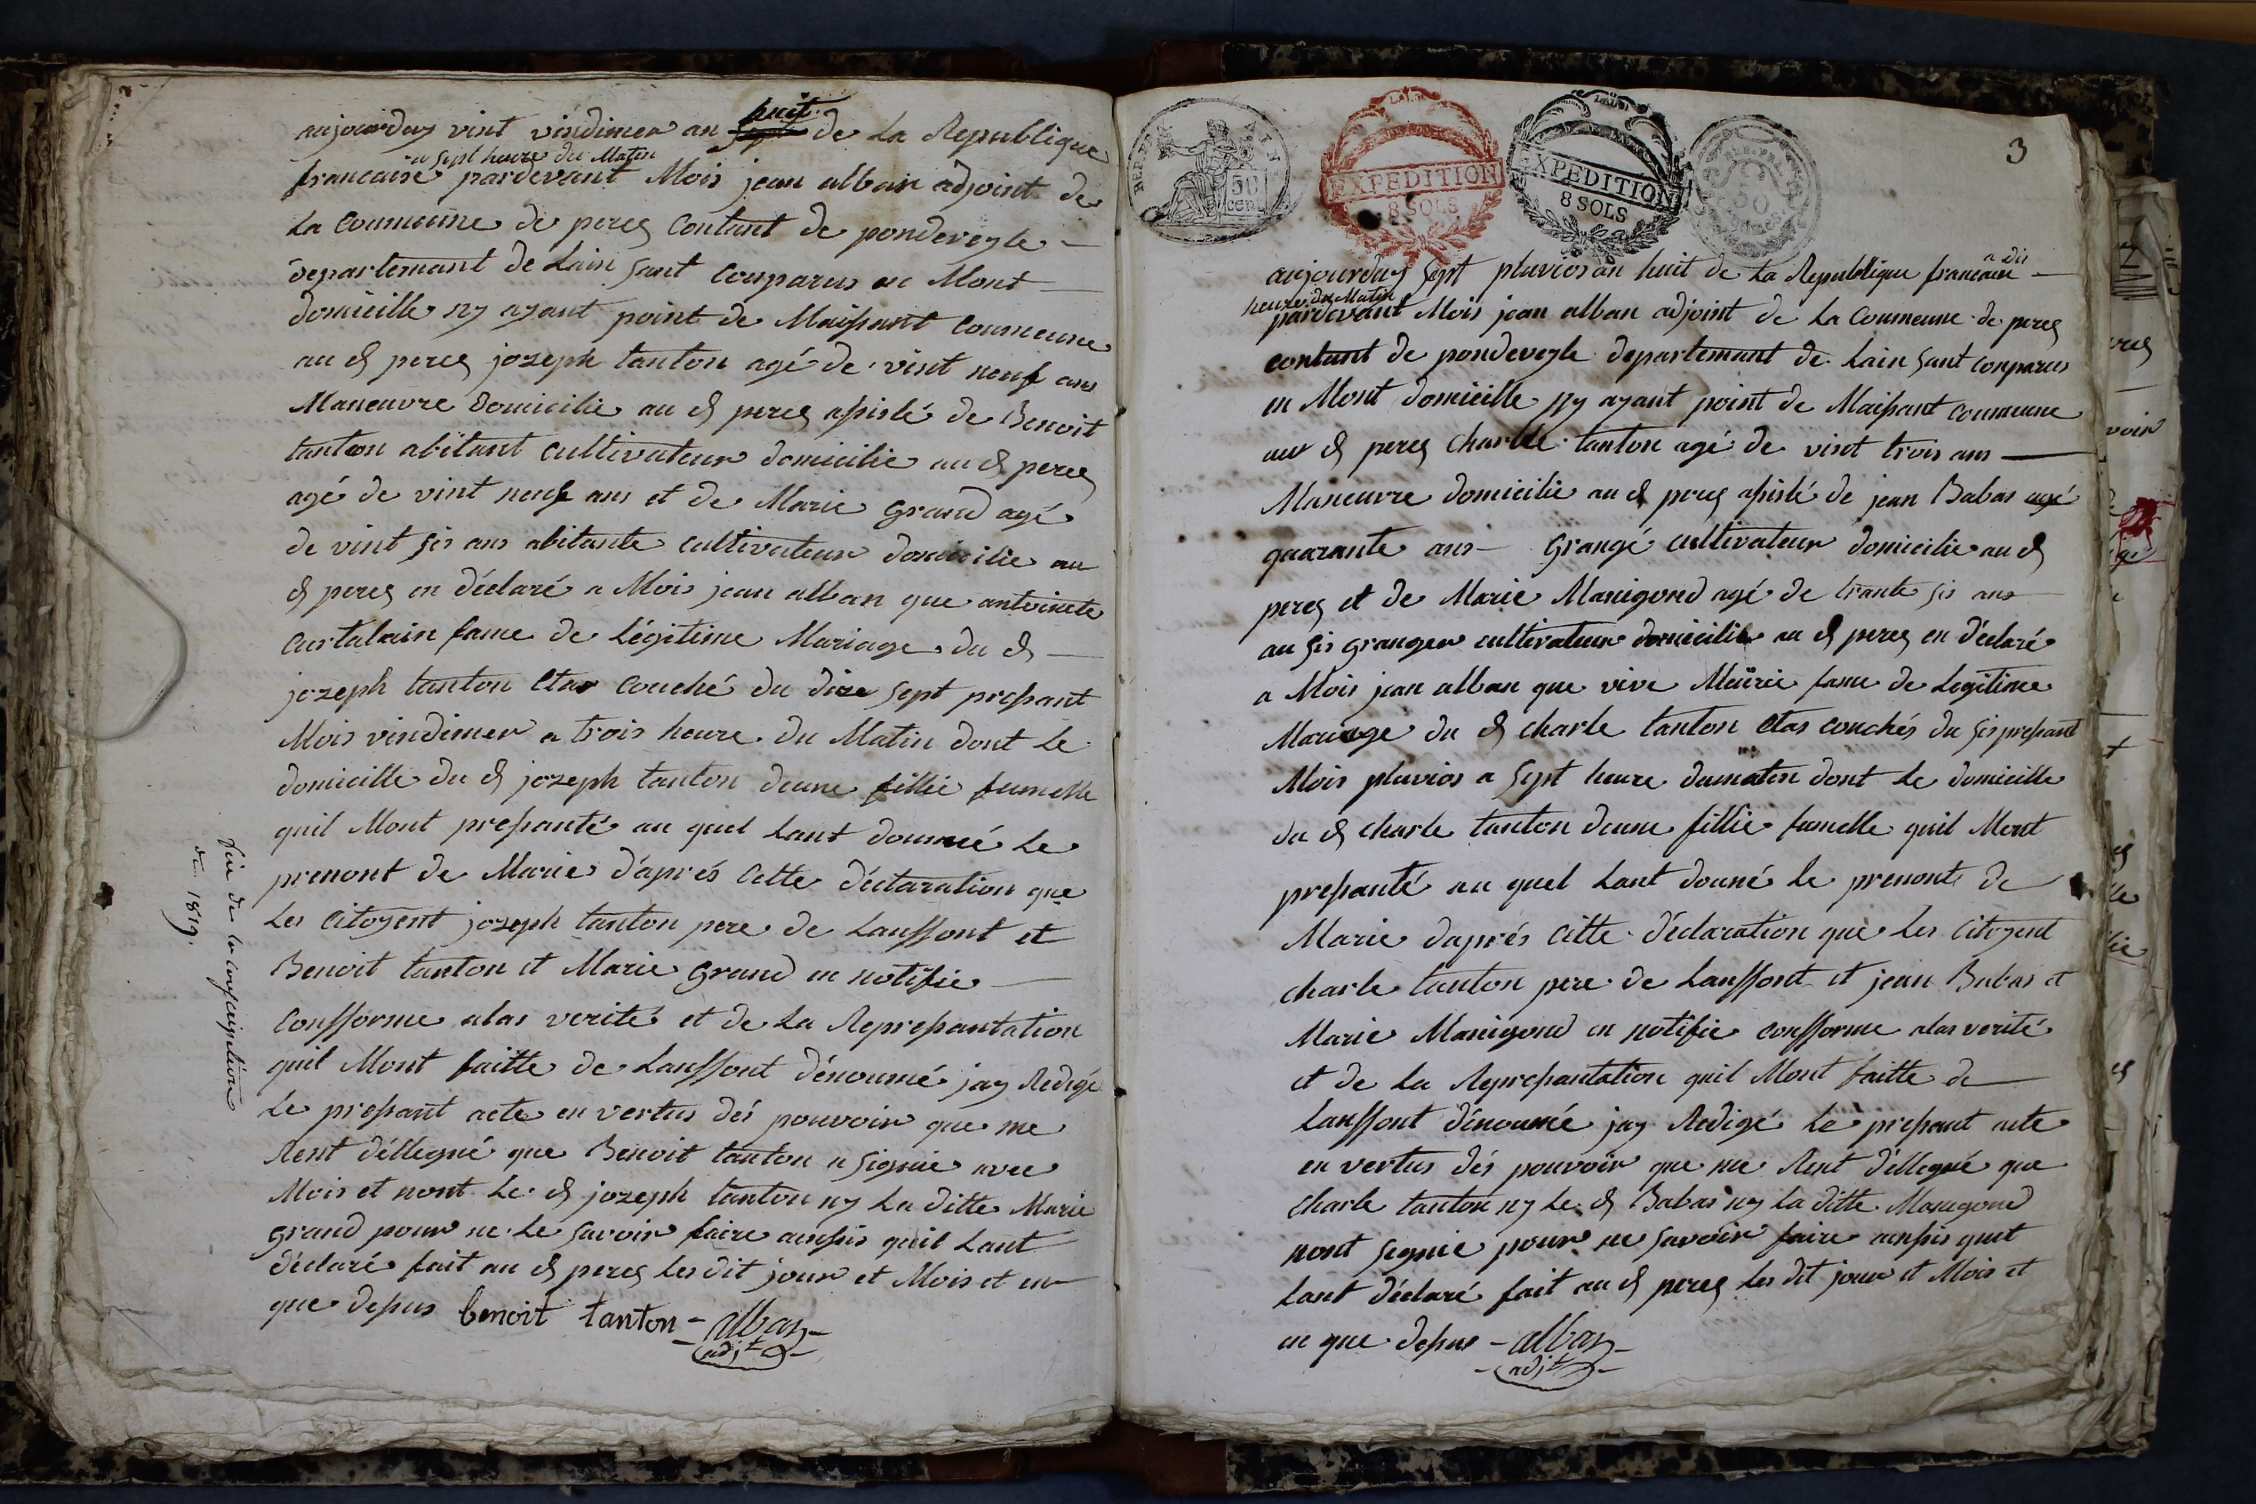 aujourduy vint vindimer an huit sept de La Republique
a sept heure du Matin
francaise pardevant Mois jean alban adjoint de
La Coumeune de perey Contant de pondeveyle
departemant de Lain sant Comparus en Mont
domicille ny ayant point de Maissant Coumeune
au d perey jozeph tanton agé de vint neuf ans
Maneuvre domicilie au d perey assisté de Benoit
tanton abitant Cultivateur domicilie au d perey
agé de vint neuf ans et de Marie Grand agé
de vint sis ans abitante cultivateur domicilie au
d perey en déclaré a Mois jean alban que antoinete
Curtalain fame de Légitime Mariage du d
jozeph tanton Etas Couché du dize sept pressant
Mois vindimer a trois heure du Matin dont Le
domicille du d jozeph tanton deune fillie fumelle
quil Mont pressanté au quel Lant douné Le
prenont de Marie dáprés Cette déclaration que
Les Citoyent jozeph tanton pere de Lanffont et
Benoit tanton et Marie Grand en notifie
Confforme alas verité et de La Repressantation
quil Mont faitte de Lanffont dénoumé jay Redigé
Le pressant acte en vertus dés pouvoir que me
Sent déllegué que Benoit tanton a signie avec
Mois et nont Le d jozeph tanton ny La ditte Marie
Grand pour ne Le savoir faire ainssis quil Lant
déclaré fait au d perey Les dit jour et Mois et en
que dessus benoit tanton - alban -
adjt
fin de la
de 1819.
3
REP. FRA.
50 cent
EXPEDITION
8 SOLS
EXPEDITION
8 SOLS
50
aujourduy sept pluvios an huit de La Republique francaise a dis
heure du Matin
pardevant Mois jean alban adjoint de La Coumeune de perey
contant de pondeveyle departemant de Lain sant Comparus
en Mont domicille ny ayant point de Maissant Coumeune
au d perey Charle tanton agé de vint trois ans
Maneuvre domicilie au d perey assisté de jean Babas agé
quarante ans Grangé cultivateur domicilie au d
perey et de Marie Manigond agé de trante sis ans
au sis granger cultivateur domicilie au d perey en déclaré
a Mois jean alban que vive Meürie fame de Legitime
Mariage du d charle tanton Etas couchés du sis pressant
Mois pluvios a sept heure dumatin dont Le domicille
du d Charle tanton deune fillie fumelle quil Mont
pressanté au quel Lant douné Le prenont de
Marie daprés Cette déclaration que Les Citoyent
charle tanton pere de Lanffont et jean Babas et
Marie Manigond en notifie confforme alas verité
et de La Repressantation quil Mont faitte de
Lanffont dénoumé jay Redigé Le pressant acte
en vertus dés pouvoir que me Sent déllegué que
Charle tanton ny Le d Babas ny La ditte Manigond
nont signie pour ne savoir faire ainssis quil
Lant déclaré fait au d perey Les dit jour et Mois et
an que dessus - alban -
adjt